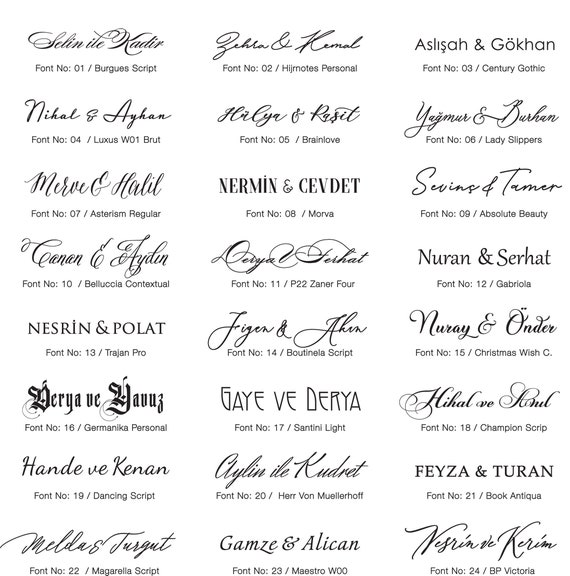 Selin ile Kadir
Font No: 01 / Burgues Script
Zehra & Kemal
Font No: 02 / Hijrnotes Personal
Aslışah & Gökhan
Font No: 03 / Century Gothic
Nihal & Ayhan
Font No: 04 / Luxus W01 Brut
Hülya & Raşit
Font No: 05 / Brainlove
Yağmur & Burhan
Font No: 06 / Lady Slippers
Merve & Halil
Font No: 07 / Asterism Regular
NERMİN & CEVDET
Font No: 08 / Morva
Sevinç & Tamer
Font No: 09 / Absolute Beauty
Canan & Aydın
Font No: 10 / Belluccia Contextual
Derya & Ferhat
Font No: 11 / P22 Zaner Four
Nuran & Serhat
Font No: 12 / Gabriola
NESRİN & POLAT
Font No: 13 / Trajan Pro
Figen & Akın
Font No: 14 / Boutinela Script
Nuray & Önder
Font No: 15 / Christmas Wish C.
Derya ve Yavuz
Font No: 16 / Germanika Personal
GAYE VE DERYA
Font No: 17 / Santini Light
Nihal ve Anıl
Font No: 18 / Champion Scrip
Hande ve Kenan
Font No: 19 / Dancing Script
Aylin ile Kudret
Font No: 20 / Herr Von Muellerhoff
FEYZA & TURAN
Font No: 21 / Book Antiqua
Melda & Turgut
Font No: 22 / Magarella Script
Gamze & Alican
Font No: 23 / Maestro W00
Nesrin ve Kerim
Font No: 24 / BP Victoria